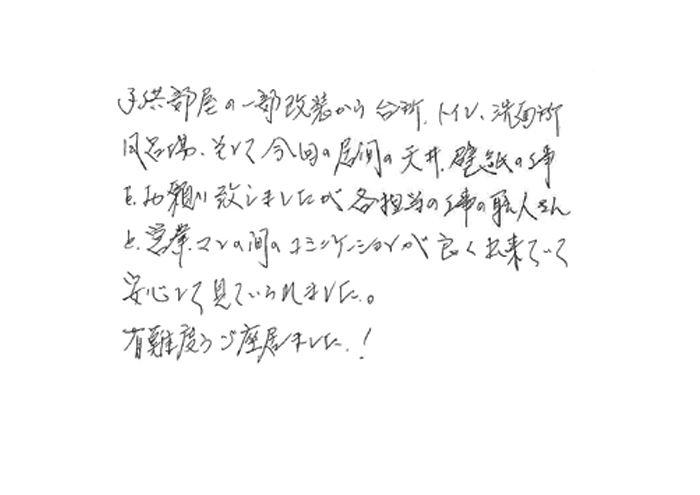 子供部屋の一部改装から台所、トイレ、洗面所
風呂場、そして今回の居間の天井、壁紙の工事
を、お願い致しましたが各担当の工事の職人さん
と、営業マンの間のコミニケーションが良く出来ていて
安心して見ていられました。
有難度うご座居ました!